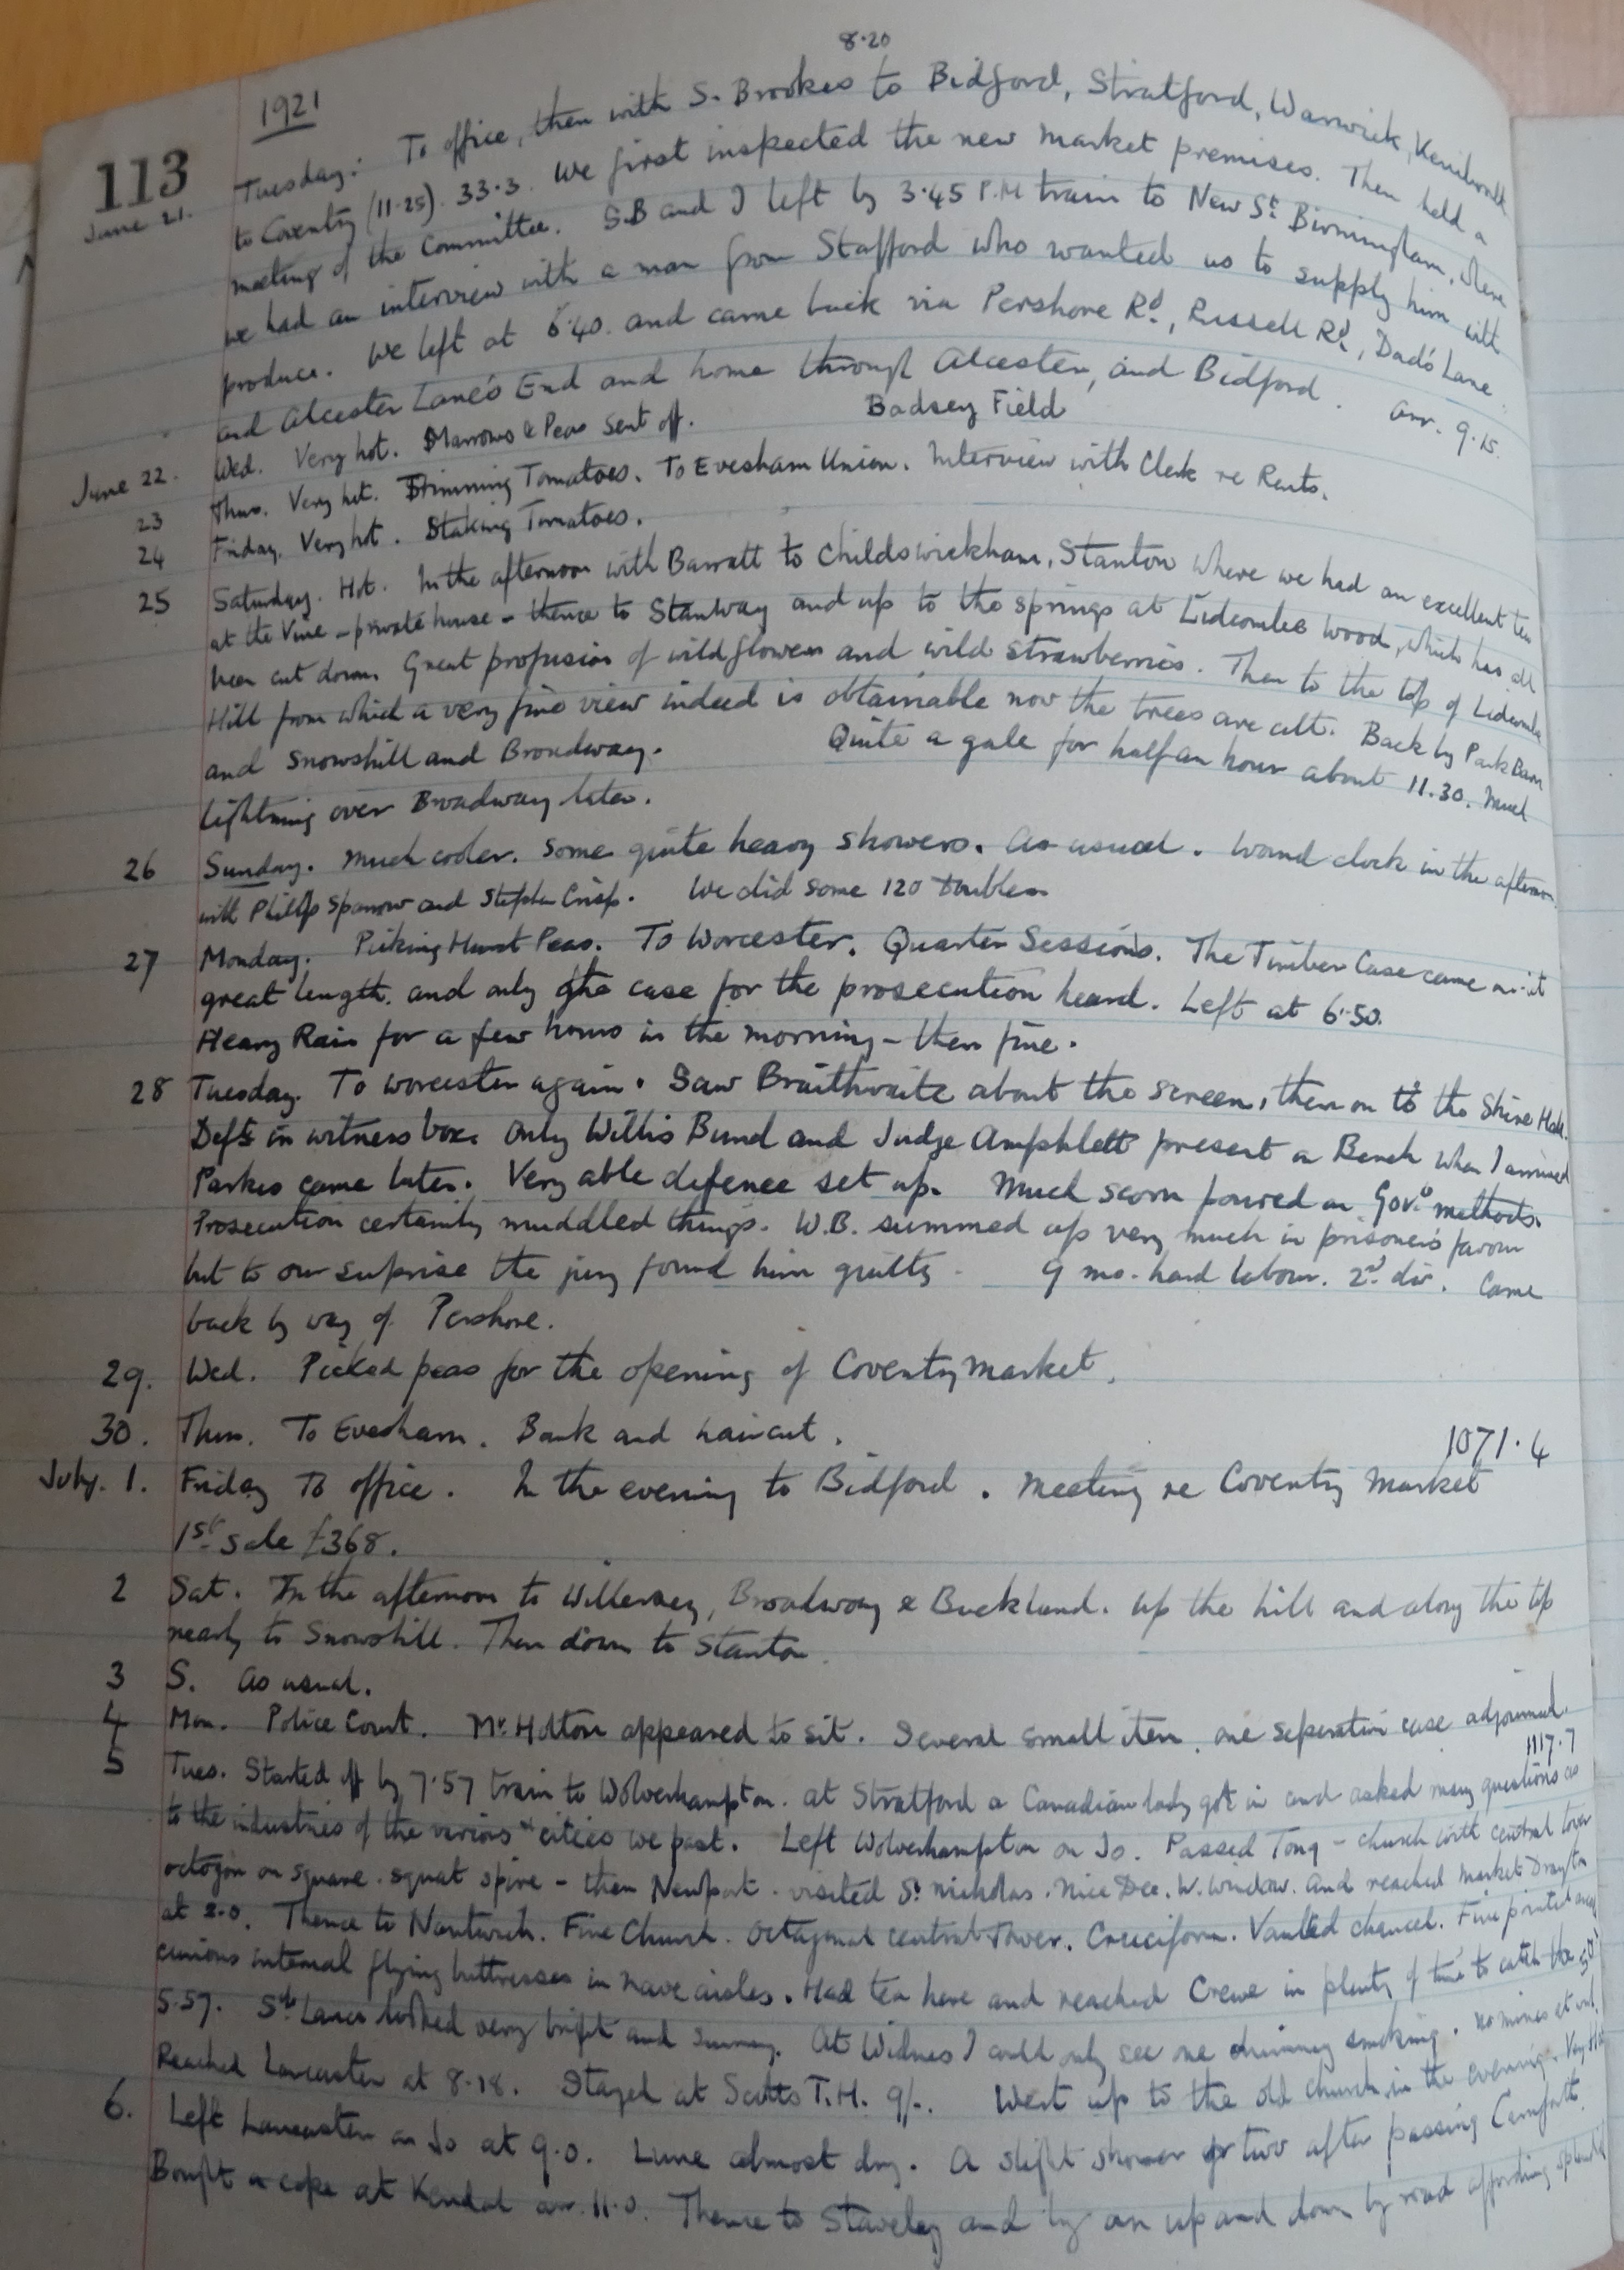 8.20
1921
113
June 21. Tuesday: To office, then with S. Brookes to Bidford, Stratford, Warwick, Kenilworth
to Coventry (11.25). 33.3. We first inspected the new market premises. Then held a
meeting of the Committee. S.B and I left by 3.45 P.M train to New St. Birmingham, where
we had an interview with a man from Stafford who wanted us to supply him with
produce. We left at 6.40. and came back via Pershore Rd., Russell Rd, Dad's Lane
and Alcester Lane's End and home through Alcester, and Bidford. arr. 9.15.
June 22. Wed. Very hot. Marrows & Peas sent off. Badsey Field
23 Thurs. Very hot. Trimming Tomatoes. To Evesham Union. Interview with Clerk re Rents.
24 Friday. Very hot. Staking Tomatoes.
25 Saturday. Hot. In the afternoon with Barratt to Childswickham, Stanton where we had an excellent tea
at the Vine - private house - thence to Stanway and up to the springs at Lidcombe Wood, which has all
been cut down. Great profusion of wild flowers and wild strawberries. Then to the top of Lidcombe
Hill from which a very fine view indeed is obtainable now the trees are cut. Back by Park Barn
and Snowshill and Broadway. Quite a gale for half an hour about 11.30. Much
lightning over Broadway later.
26 Sunday. Much cooler. Some quite heavy showers. As usual. Wound clock in the afternoon
with Philip Sparrow and Stephen Crisp. We did some 120 Doubles
27 Monday. Picking Hurst Peas. To Worcester. Quarter Sessions. The Timber Case came on at
great length. and only the case for the prosecution heard. Left at 6.50.
Heavy Rain for a few hours in the morning - then fine.
28 Tuesday. To Worcester again. Saw Braithwaite about the screen, then on to the Shire Hall.
Defts in witness box. Only Willis Bund and Judge Amphlett present on Bench when I arrived
Parkes came later. Very able defence set up. Much scorn poured on Govt. methods.
Prosecution certainly muddled things. W.B. summed up very much in prisoner's favour
but to our suprise the jury found him guilty - 9 mo. hard labour. 2nd. div. Came
back by way of Pershore.
29. Wed. Picked peas for the opening of Coventry Market.
30. Thurs. To Evesham. Bank and haircut.
1071.4
July. 1. Friday To office. In the evening to Bidford. Meeting re Coventry Market
1st sale £368.
2 Sat. In the afternoon to Willersey, Broadway & Buckland. Up the hill and along the top
nearly to Snowshill. Then down to Stanton.
3 S. As usual.
4 Mon. Police Court. Mr. Holton appeared to sit. Several small items, one seperation case adjourned.
1117.7
5 Tues. Started off by 7.57 train to Wolverhampton. At Stratford a Canadian lady got in and asked many questions as
to the industries of the various cities we past. Left Wolverhampton on Jo. Passed Tong - church with central tower
octogon on square. squat spire - then Newport. visited St. Nicholas. Nice Dec. W. window. And reached Market Drayton
at 2.0. Thence to Nantwich. Fine Church. Octagonal central Tower. Cruciform. Vaulted chancel. Fine
curious internal flying buttresses in nave aisles. Had tea here and reached Crewe in plenty of time to catch the
5.57. Sth Lancs looked very bright and sunny. At Widnes I could only see one chimney smoking. No mines at work.
Reached Lancaster at 8.18. Stayed at Scotts T.H. 9/-. Went up to the old church in the evening. Very
6. Left Lancaster on Jo at 9.0. Lune almost dry. A slight shower or two after passing Carnforth.
Bought a cape at Kendal arr. 11.0. Thence to Staveley and by an up and down by road affording splendid